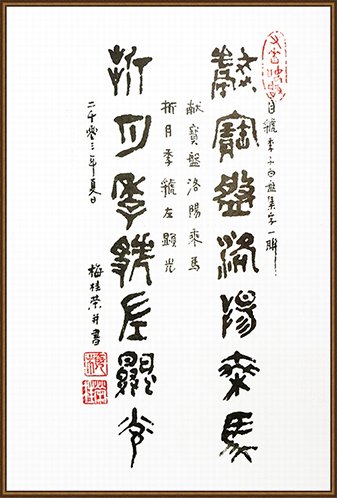 自虢季子白盘集字一联
献寶盤洛陽乘馬
献寶盤洛陽乘馬
折月季虢左顯光
折月季虢左顯光
二千零三年夏日
梅桂荣并書